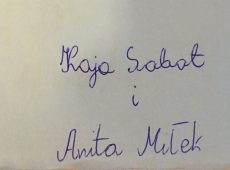 Kaja Sabat
i
Anita Miłek